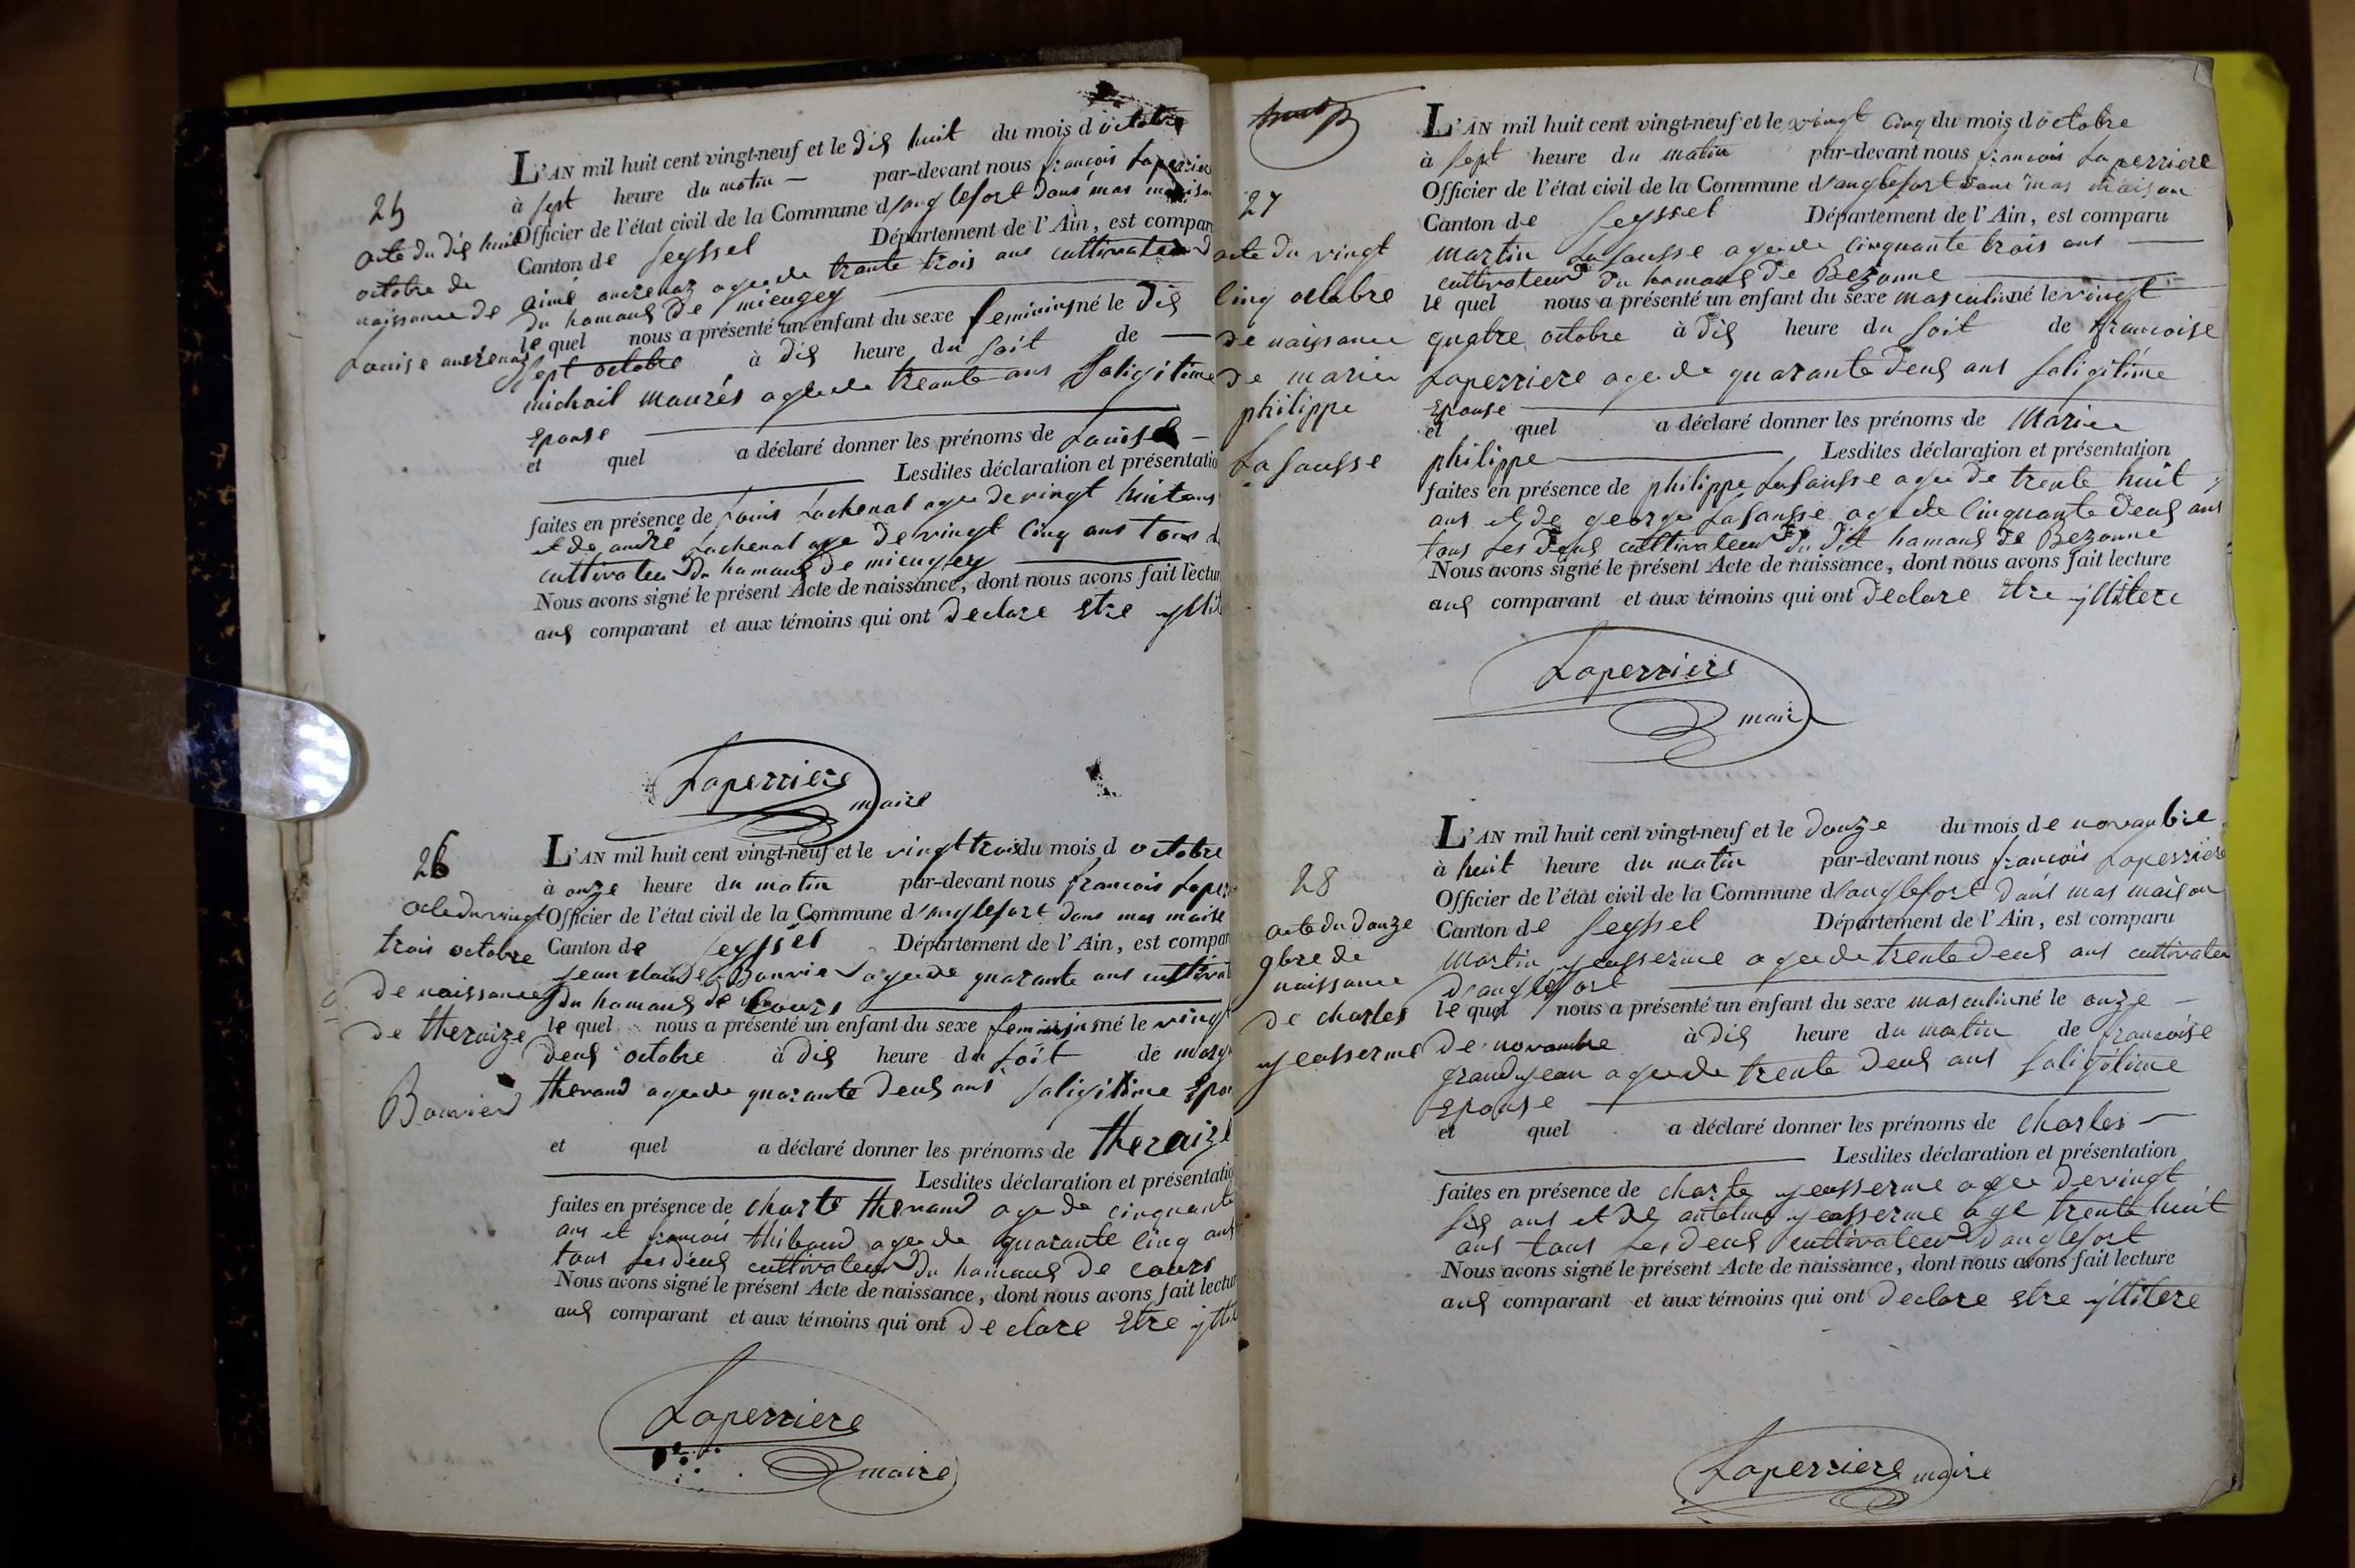 25
acte du dis huit
octobre de
naissance de
Louise ancrenaz
L'AN mil huit cent vingt-neuf et le dis huit du mois d octobre
à sept heure du matin — par-devant nous francois Laperrier
Officier de l'état civil de la Commune d'anglefort dans mas maison
Canton de Seyssel Département de l'Ain, est compar
aimé ancrenaz agee de trante trois ans cultivateur d
du hamaus de mieugey
le quel nous a présenté un enfant du sexe feminin né le dis
sept octobre à dis heure du soit de —
michail maurés agee de treante ans Saligitime
Epouse
et quel a déclaré donner les prénoms de Louise —
Lesdites déclaration et présentatio
faites en présence de Louis Lachenal agee de vingt huit ans
et de andré Lachenal age de vingt cinq ans tous d
cultivateur du hamaus de mieugey
Nous avons signé le présent Acte de naissance, dont nous avons fait lectur
aus comparant et aux témoins qui ont declare Etre yllit
Laperriere
maire
26
acte du vingt
trois octobre
de naissance
de theraize
Bouvier
L'AN mil huit cent vingt-neuf et le vingt trois du mois d octobre
à onze heure du matin par-devant nous francois Laper
Officier de l'état civil de la Commune d'anglefort dans mas maise
Canton de Seyssel Département de l'Ain, est compar
jean claude Bouvier agee de quarante ans cultivat
du hamaus de Cours
le quel nous a présenté un enfant du sexe feminin né le vingt
deus octobre à dis heure du soit de marg
thevand agee de quarante deus ans Saligitime Epou
et quel a déclaré donner les prénoms de theraize
Lesdites déclaration et présentatio
faites en présence de charle thevand age de cinquante
ans et francois thiboud agee de quarante cinq ans
tous les deus cultivateur du hamaus de cours
Nous avons signé le présent Acte de naissance, dont nous avons fait lectur
aus comparant et aux témoins qui ont declare Etre yllit
Laperriere
maire
27
acte du vingt
cinq octobre
de naissance
de marie
philippe
Lasausse
L'AN mil huit cent vingt-neuf et le vingt cinq du mois d octobre
à sept heure du matin par-devant nous francois Laperriere
Officier de l'état civil de la Commune d'anglefort dans mas maison
Canton de Seyssel Département de l'Ain, est comparu
martin Lasausse agee de cinquante trois ans
cultivateur du hamaus de Bezonne
le quel nous a présenté un enfant du sexe masculin né le vingt
quatre octobre à dis heure du soit de francoise
Laperriere agee de quarante deus ans Saligitime
Epouse
et quel a déclaré donner les prénoms de Marie
philippe Lesdites déclaration et présentation
faites en présence de philippe Lasausse agee de trente huit
ans et de george Lasausse agee de cinquante deus ans
tous Les deus cultivateur du dit hamaus de Bezonne
Nous avons signé le présent Acte de naissance, dont nous avons fait lecture
aus comparant et aux témoins qui ont declare Etre yllitere
Laperriere
maire
28
acte du douze
9bre de
naissance
de charles
yeasserme
L'AN mil huit cent vingt-neuf et le douze du mois de novanbre
à huit heure du matin par-devant nous francois Laperriere
Officier de l'état civil de la Commune d'anglefort dans mas maison
Canton de Seyssel Département de l'Ain, est comparu
Martin yeasserme agee de trente deus ans cultivateur
d'anglefort
le quel nous a présenté un enfant du sexe masculin né le onze —
de novanbre à dis heure du matin de francoise
grandyean agee de trente deus ans Saligitime
Epouse
et quel a déclaré donner les prénoms de charles —
Lesdites déclaration et présentation
faites en présence de charle yeasserme agee de vingt
sis ans et de antelme yeasserme age trente huit
ans tous Les deus cultivateur d'anglefort
Nous avons signé le présent Acte de naissance, dont nous avons fait lecture
aus comparant et aux témoins qui ont declare Etre yllitere
Laperriere maire